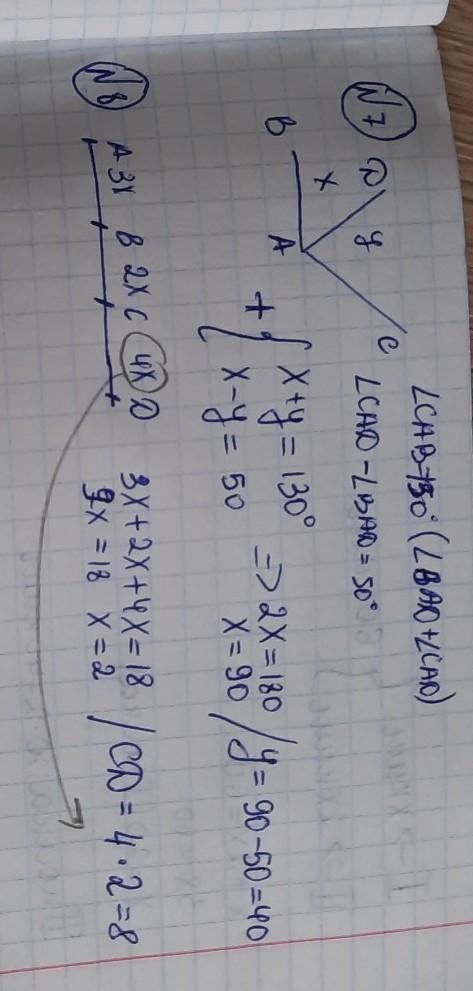 N7
∠CAB=130° (∠BAD+∠CAD)
D
B x y
A C
∠CAD-∠BAD=50°
+ { x+y=130°
x-y=50
=> 2x=180
x=90 / y=90-50=40
N8
A 3x B 2x C 4x D
3x+2x+4x=18
9x=18 x=2 / CD=4·2=8